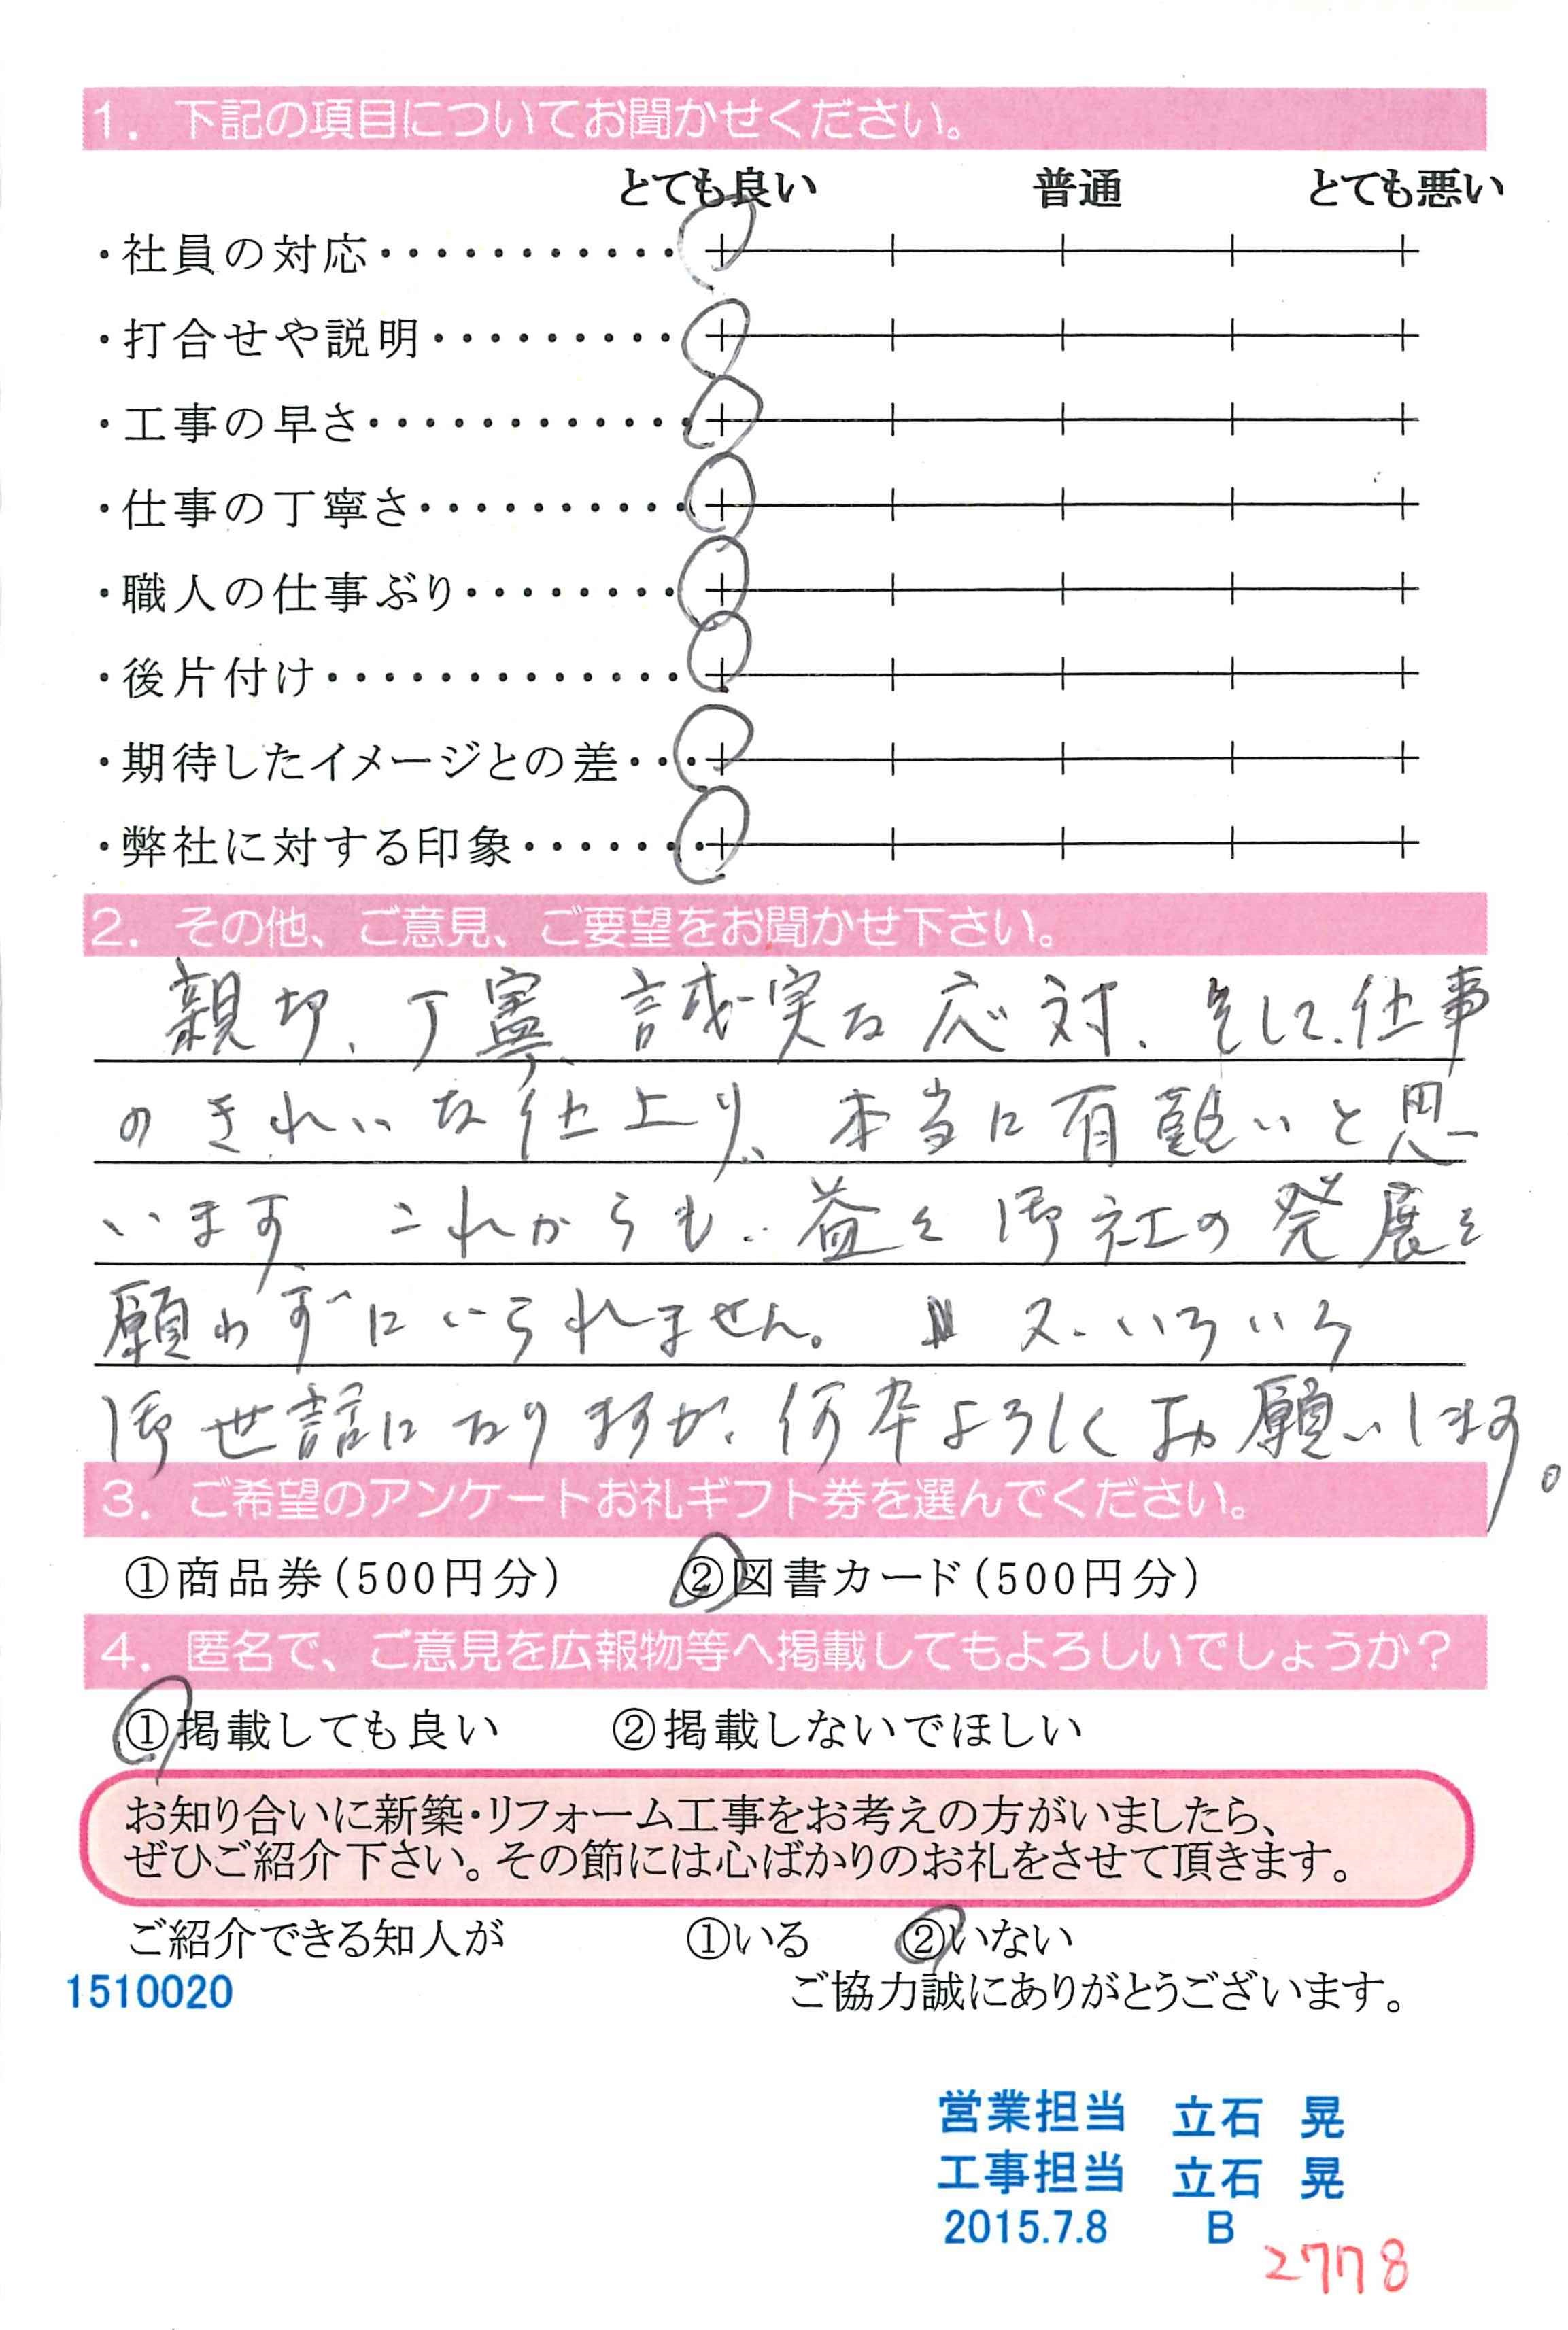 1. 下記の項目についてお聞かせください。
とても良い 普通 とても悪い
・社員の対応・・・・・・・・・・・
・打合せや説明・・・・・・・・・
・工事の早さ・・・・・・・・・・・・
・仕事の丁寧さ・・・・・・・・・・
・職人の仕事ぶり・・・・・・・・
・後片付け・・・・・・・・・・・・・
・期待したイメージとの差・・・
・弊社に対する印象・・・・・・・
2. その他、ご意見、ご要望をお聞かせ下さい。
親切、丁寧、誠実な応対、そして、仕事
のきれいな仕上り、本当に有難いと思
います これからも、益々御社の発展を
願わずにいられません。 又、いろいろ
御世話になりますが、何卒よろしくお願いします。
3. ご希望のアンケートお礼ギフト券を選んでください。
①商品券(500円分) ②図書カード(500円分)
4. 匿名で、ご意見を広報物等へ掲載してもよろしいでしょうか?
①掲載しても良い ②掲載しないでほしい
お知り合いに新築・リフォーム工事をお考えの方がいましたら、
ぜひご紹介下さい。その節には心ばかりのお礼をさせて頂きます。
ご紹介できる知人が ①いる ②いない
1510020 ご協力誠にありがとうございます。
営業担当 立石 晃
工事担当 立石 晃
2015.7.8 B
2778